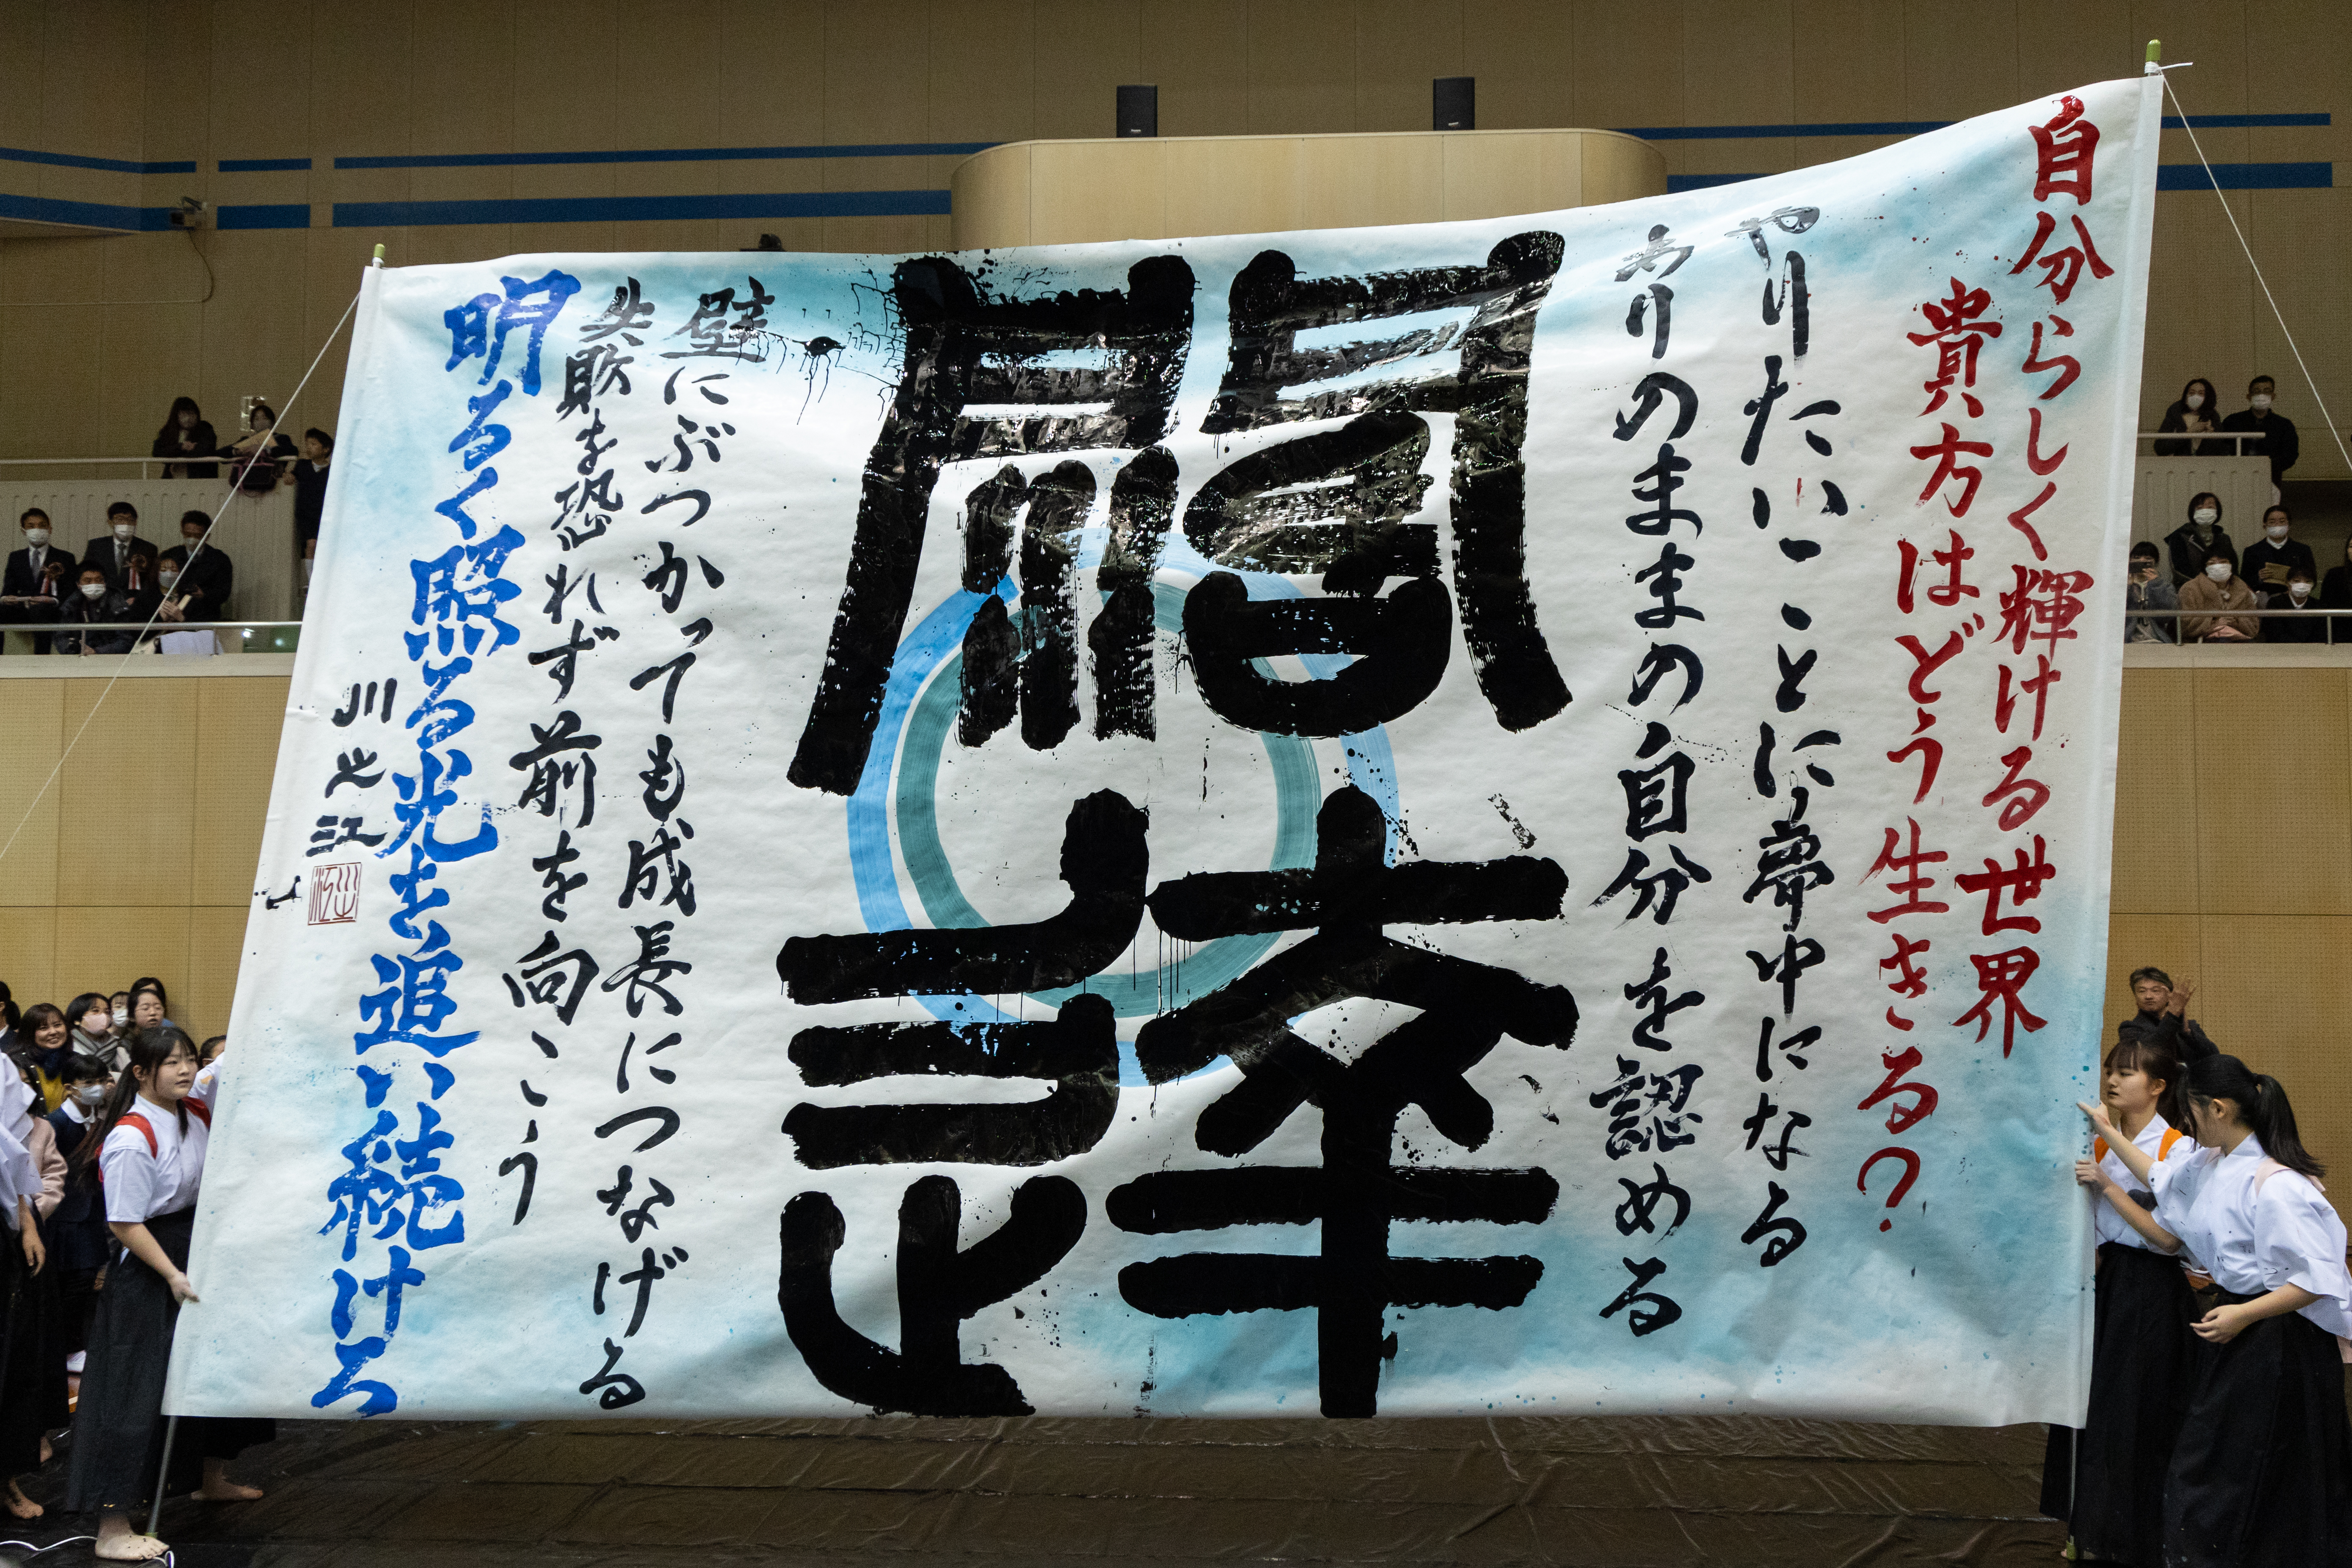 自分らしく輝ける世界
貴方はどう生きる?
やりたいことに夢中になる
ありのままの自分を認める
闊達
壁にぶつかっても成長につなげる
失敗を恐れず前を向こう
明るく照る光を追い続けろ
川之江